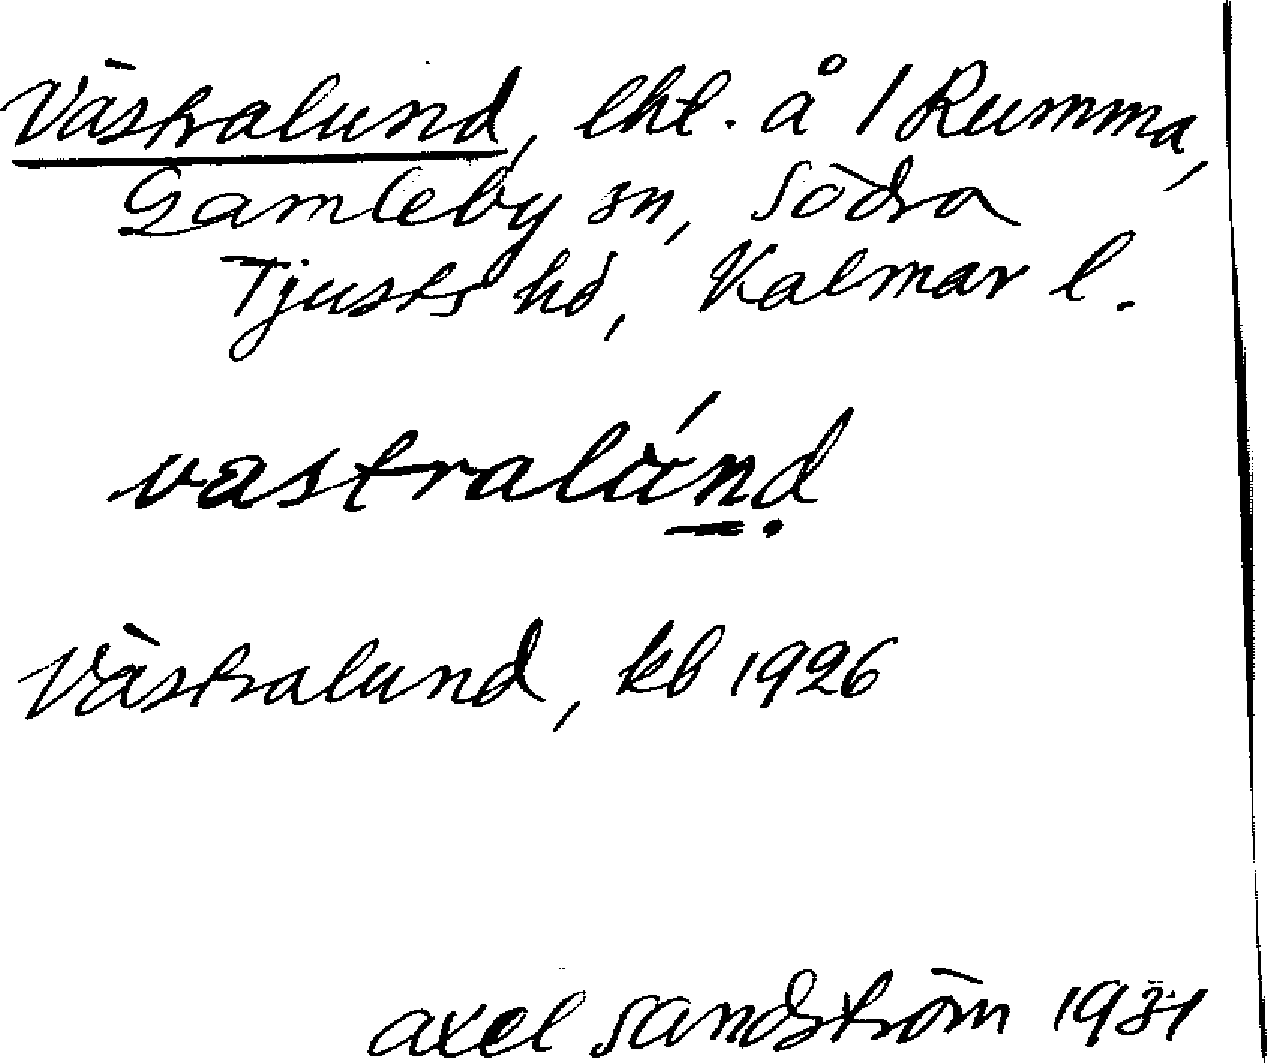 Västralund, lht. å 1 Rumma,
Gamleby sn, Södra
Tjusts hd, Kalmar l.
vastralúnd
Västralund, kb 1926
Axel Sandström 1931